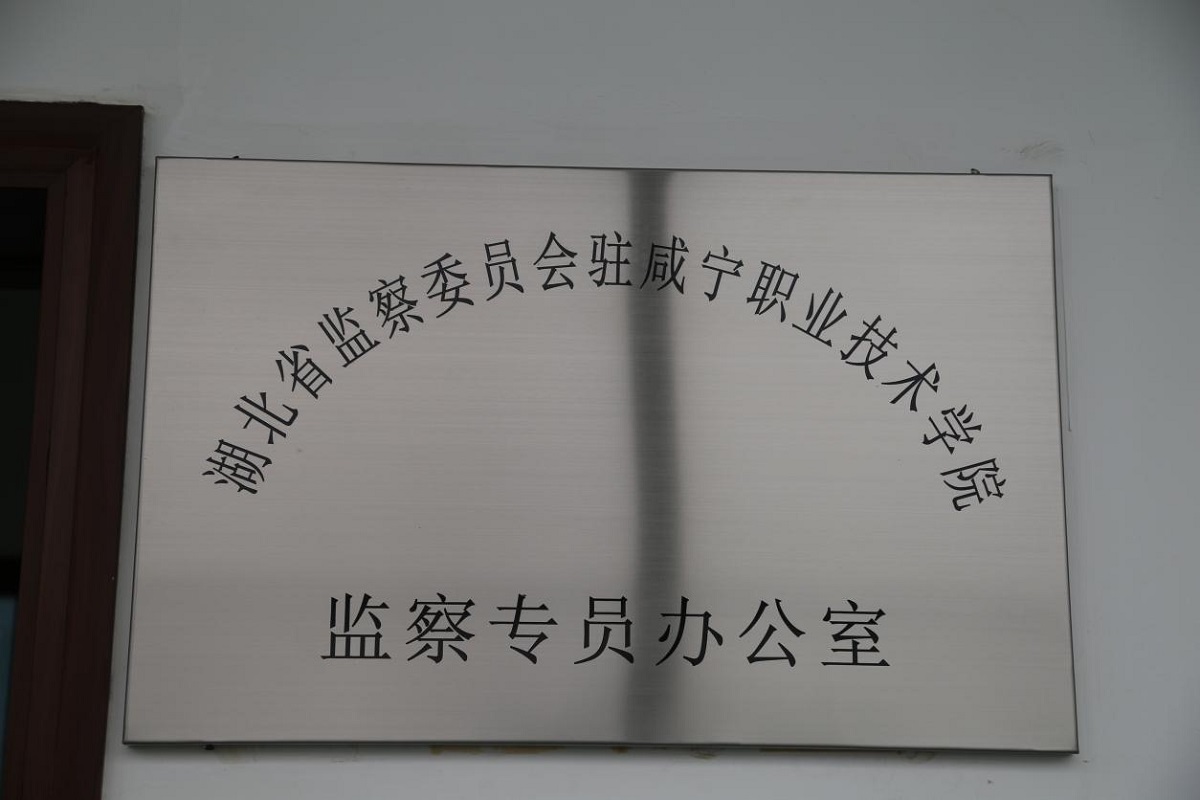 湖北省监察委员会驻咸宁职业技术学院
监察专员办公室